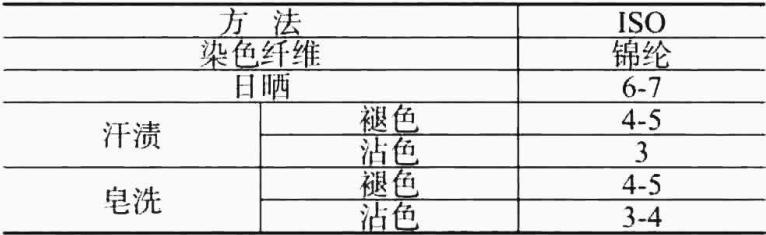 方 法 ISO
染色纤维 锦纶
日晒 6-7
汗渍 褪色 4-5
沾色 3
皂洗 褪色 4-5
沾色 3-4